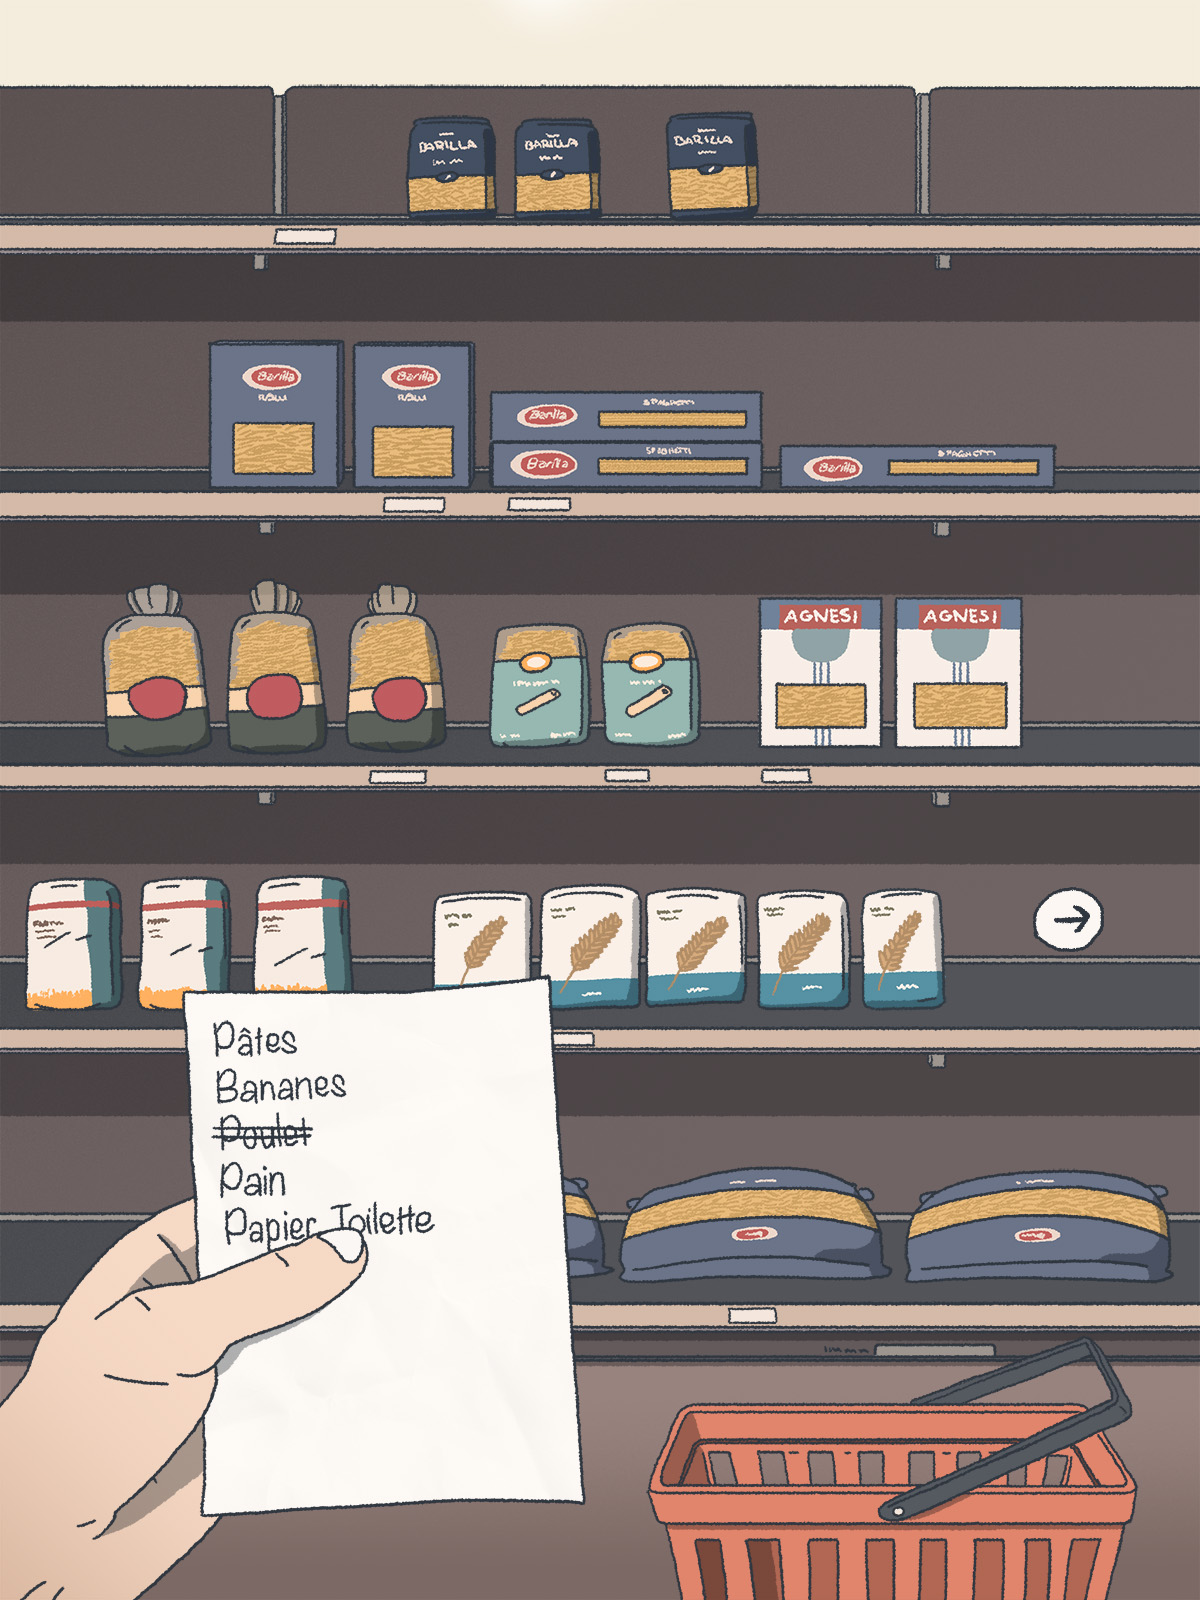 BARILLA
BARILLA
BARILLA
Barilla
Barilla
Barilla
SPAGHETTI
Barilla
SPAGHETTI
Barilla
SPAGHETTI
AGNESI
AGNESI
Pâtes
Bananes
Poulet
Pain
Papier Toilette